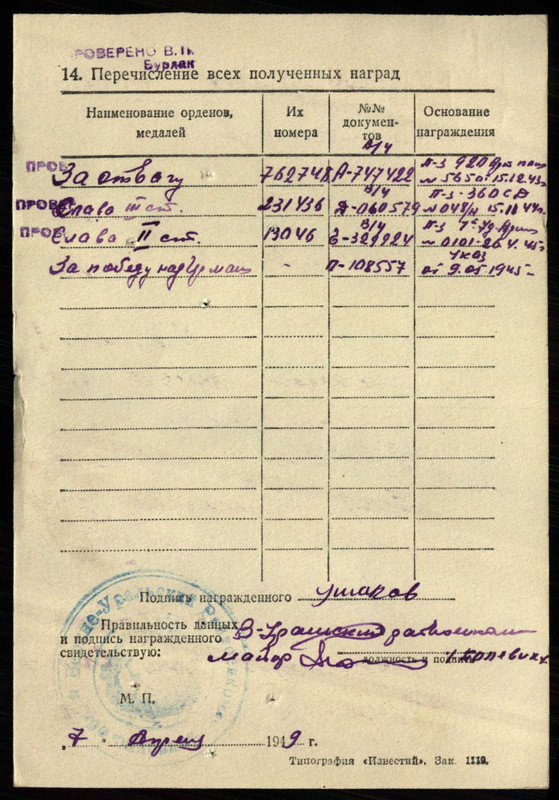 РОВЕРЕНО В.П
Бурлак
14. Перечисление всех полученных наград
Наименование орденов, медалей
Их номера
№№ документов
Основание награждения
ПРОВ
За отвагу
762748
в/у
А-747422
П-з 920
№ 565 от 15.12.43г
ПРОВ
Слава III ст.
231436
в/у
Д-060579
П-з 360 СД
№ 048/н 15.11.44г.
ПРОВ
Слава II ст.
13046
в/у
329224
П-з
За победу над Герман
-
П-108557
Указ
от 9.05.1945г
Подпись награжденного Ушаков
Правильность данных
и подпись награжденного
свидетельствую:
В-Уральский райвоенком
майор
должность и подпись
М. П.
„7 Апреля 1949 г.
Типография «Известий». Зак. 1119.